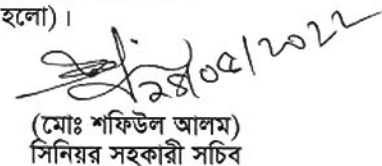 হলো)।
২৪/০৫/২০২২
(মোঃ শফিউল আলম)
সিনিয়র সহকারী সচিব